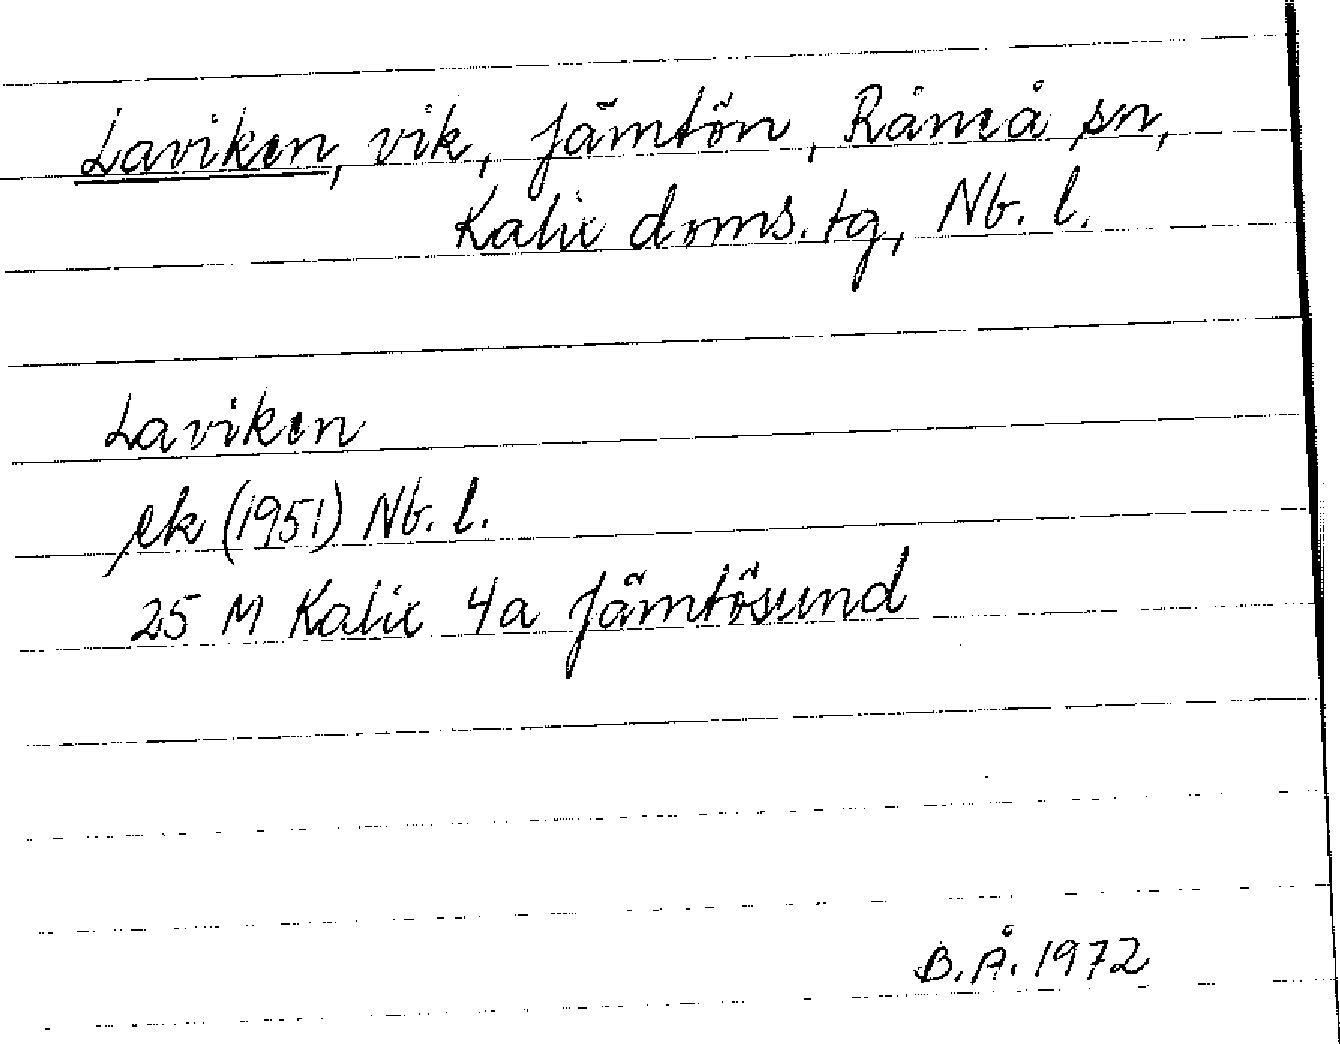 Laviken, vik, Jämtön, Råneå sn,
Kalix doms.tg, Nb. l.
Laviken
ek (1951) Nb. l.
25 M Kalix 4a Jämtösund
B.Å. 1972